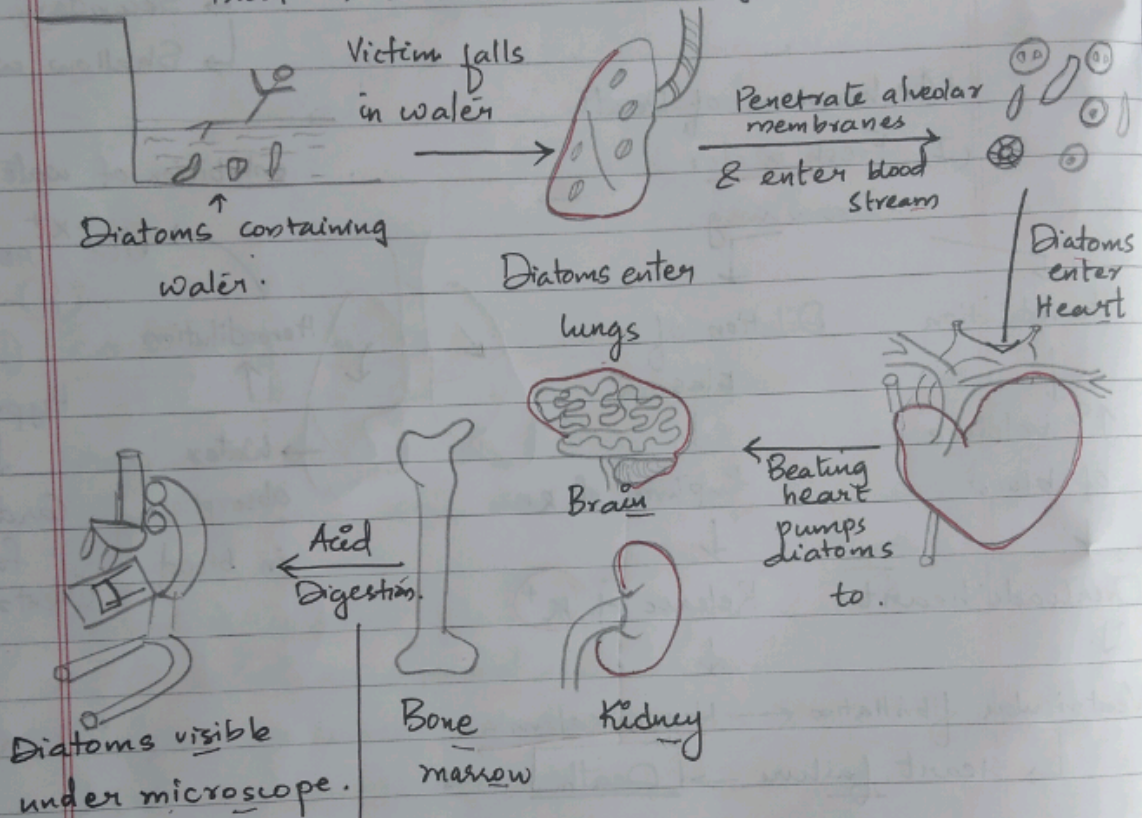 Victim falls
in water
Diatoms containing
water.
Diatoms enter
lungs
Penetrate alveolar
membranes
& enter blood
stream
Diatoms
enter
Heart
Beating
heart
pumps
diatoms
to.
Brain
Kidney
Bone
marrow
Acid
Digestion.
Diatoms visible
under microscope.